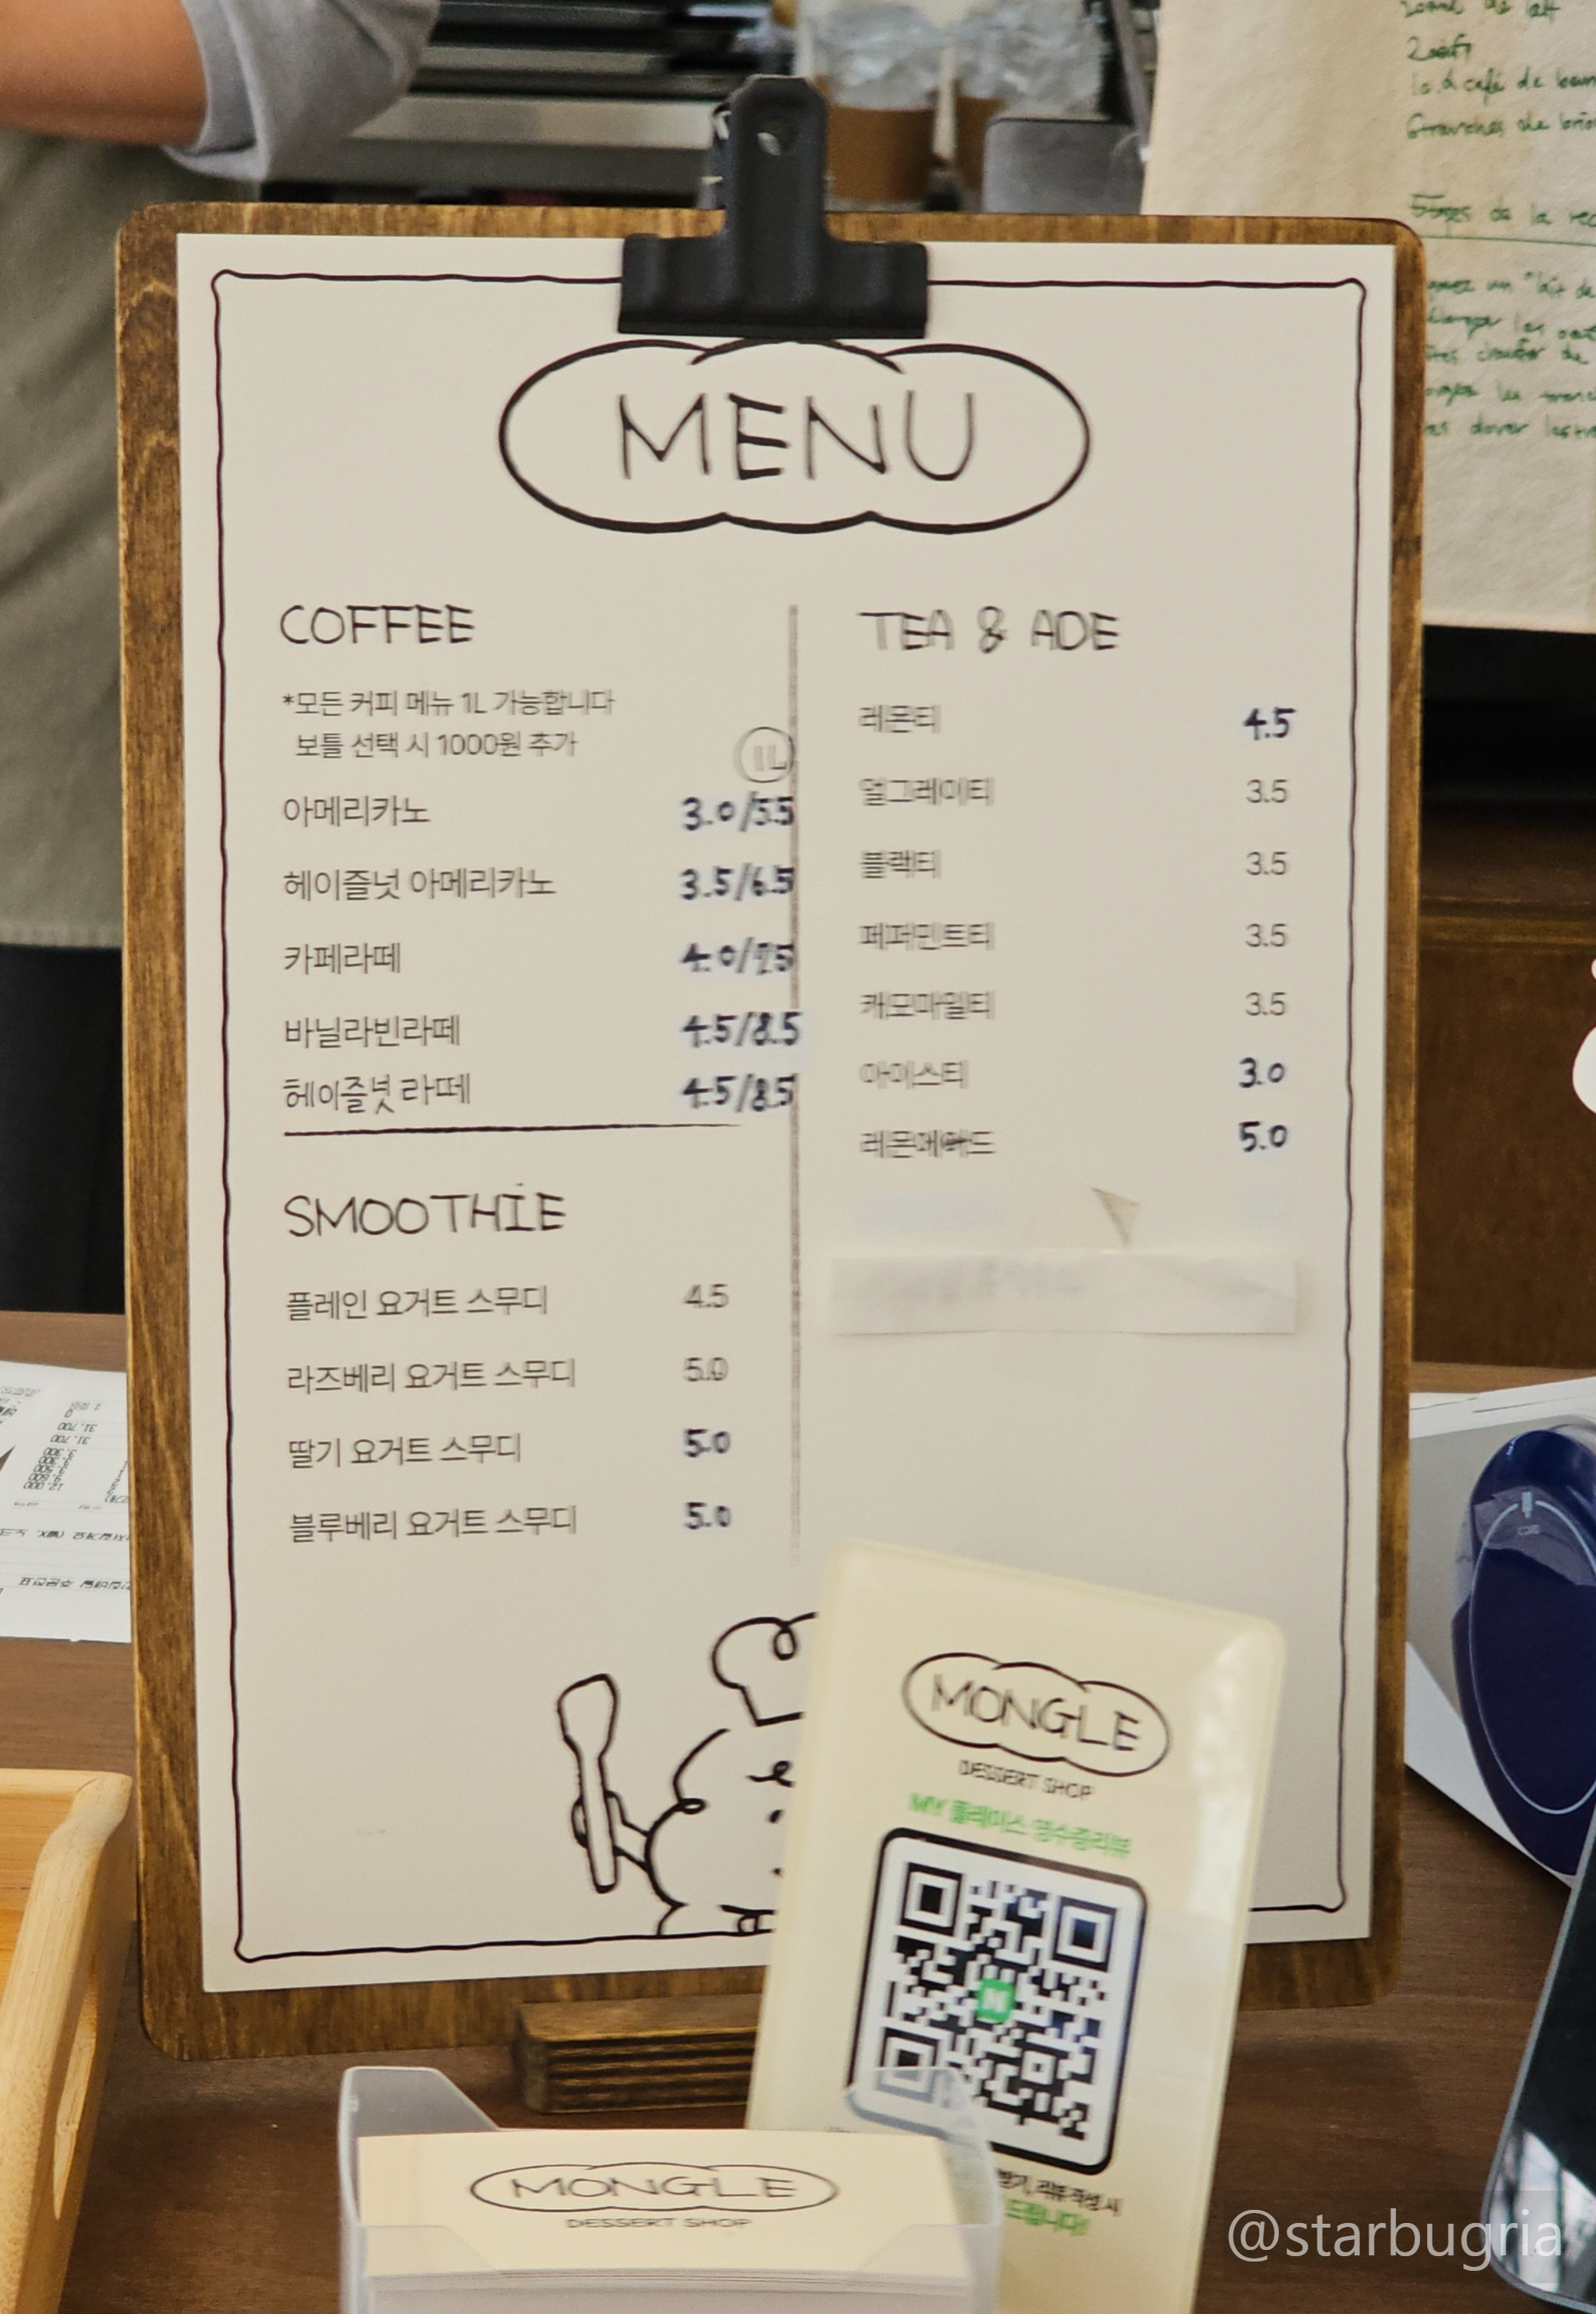 MENU
COFFEE
*모든 커피 메뉴 1L 가능합니다
보틀 선택 시 1000원 추가
1L
아메리카노 3.0/5.5
헤이즐넛 아메리카노 3.5/6.5
카페라떼 4.0/7.5
바닐라빈라떼 4.5/8.5
헤이즐넛 라떼 4.5/8.5
SMOOTHIE
플레인 요거트 스무디 4.5
라즈베리 요거트 스무디 5.0
딸기 요거트 스무디 5.0
블루베리 요거트 스무디 5.0
TEA & ADE
레몬티 4.5
얼그레이티 3.5
블랙티 3.5
페퍼민트티 3.5
캐모마일티 3.5
아이스티 3.0
레몬에이드 5.0
MONGLE
DESSERT SHOP
MY 플레이스 영수증리뷰
리뷰 작성 시
드립니다!
MONGLE
DESSERT SHOP
@starbugria